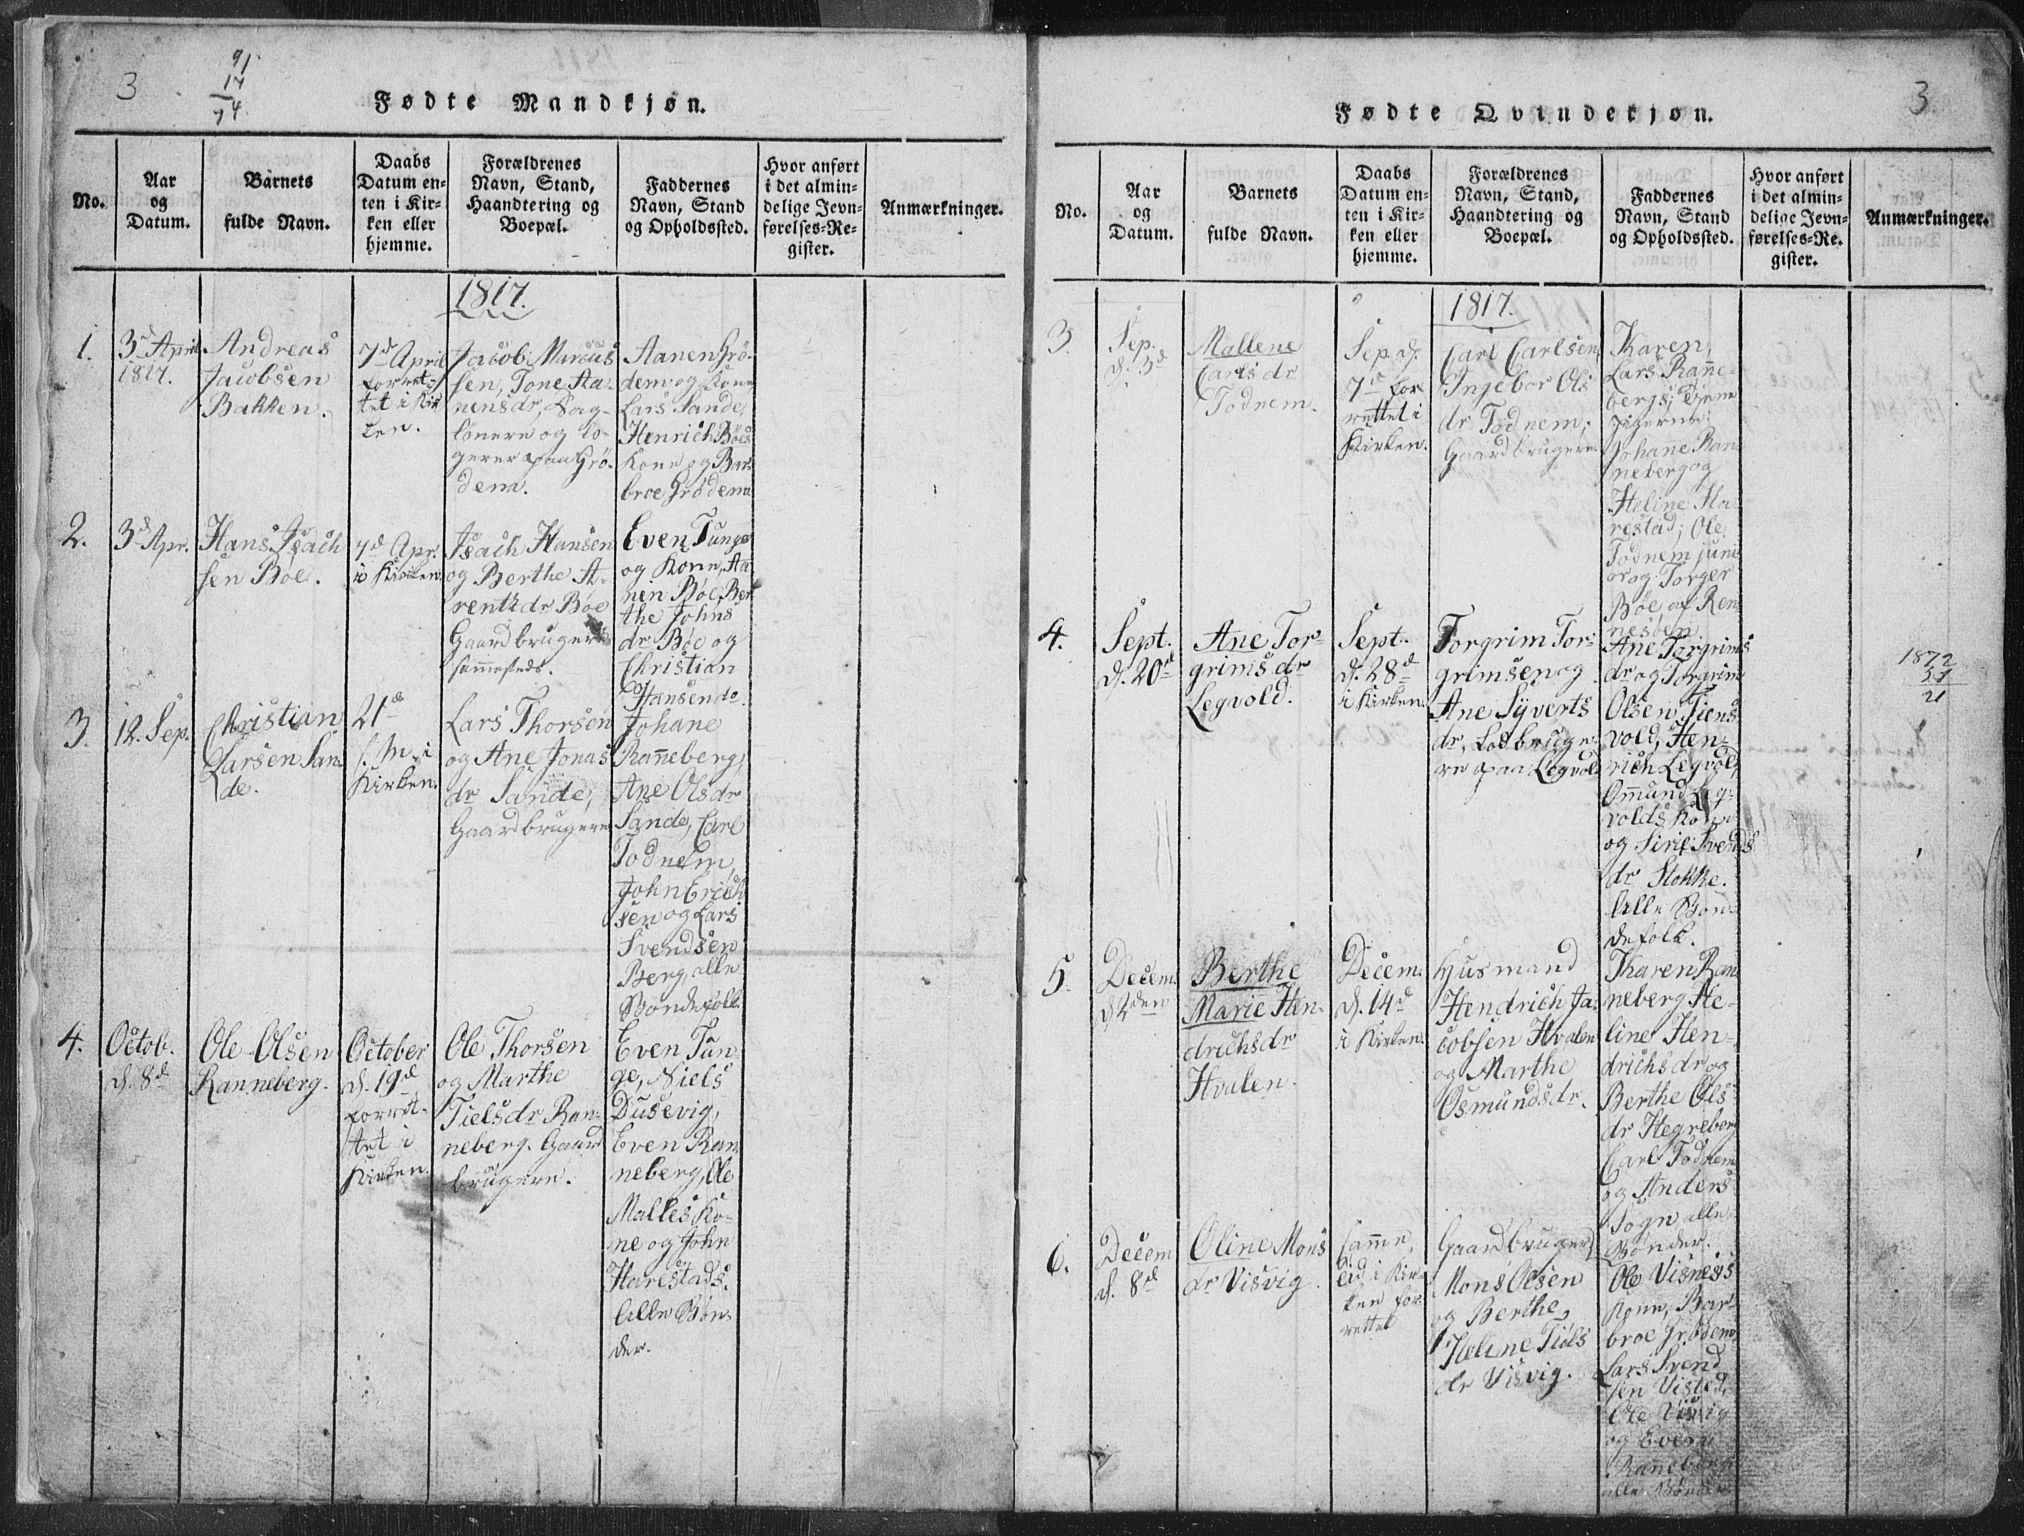 3
91
17
74
Fødte Mandkjøn.
No.
Aar
og
Datum.
Barnets
fulde Navn.
Daabs
Datum en-
ten i Kir-
ken eller
hjemme.
Forældrenes
Navn, Stand,
Haandtering og
Boepæl.
Faddernes
Navn, Stand
og Opholdssted.
Hvor anført
i det almin-
delige Jevn-
førelses-Re-
gister.
Anmærkninger.
1817.
1.
3d April
1817.
Andreas
Jacobsen
Bakken.
7d April
forret-
tet i Kir
ken.
Jacob Marcus
sen, Tone Aa-
nensdr, Dag-
lønere og lo-
gerer paa Grø-
dem.
Aanen Grø-
dem og Kone
Lars Sande,
Henrich Böes
Kone og Bar-
broe Grødem.
2.
3d Apr.
Hans Isach
sen Böe.
7d Apr.
i Kirken.
Isach Hansen
og Berthe A-
rentsdr Böe
Gaardbrugere
sammesteds.
Even Tunge
og Kone, Aa-
nen Böe, Ber
the Johns
dr Böe og
Christian
Hansen do.
3.
12. Sep.
Christian
Larsen San-
de.
21d
s. M. i
Kirken.
Lars Thorsen
og Ane Jonas
dr Sande,
Gaardbrugere
Johane
Ranneberg,
Ane Olsdr
Sande, Carl
Todnem,
John Erich
sen og Lars
Svendsen
Berg, alle
Bondefolk.
4.
Octob.
d. 8d
Ole Olsen
Ranneberg.
October
d. 19d
forret-
tet i
Kirken.
Ole Thorsen
og Marthe
Tielsdr Ran-
neberg. Gaard
brugere.
Even Tun-
ge, Niels
Dusevig,
Even Ran-
neberg, Ole
Malles Ko-
ne og John
Harestads.
Alle Bøn-
der.
3.
Fødte Qvindekjøn.
No.
Aar
og
Datum.
Barnets
fulde Navn.
Daabs
Datum en-
ten i Kir-
ken eller
hjemme.
Forældrenes
Navn, Stand,
Haandtering og
Boepæl.
Faddernes
Navn, Stand
og Opholdssted.
Hvor anført
i det almin-
delige Jevn-
førelses-Re-
gister.
Anmærkninger.
1817.
3
Sep.
d. 3d
Mallene
Carlsdr
Todnem.
Sep. d.
7d for-
rettet i
Kirken.
Carl Carlsen
Ingebor Ols
dr Todnem,
Gaardbrugere
Karen,
Lars Ranne-
bergs Tjene
Johane Ran
neberg og
Heline Ha-
restad; Ole
Todnem juni
or og Torger
Böe af Ren
nesöen
4.
Sept.
d. 20d
Ane Tor-
grimsdr
Legvold.
Sept.
d. 28d
i Kirken.
Torgrim Tor-
grimsen og
Ane Syverts
dr, Lodbruge-
re paa Legvold
Ane Torgrims
dr og Torgrim
Olsen Tiens
vold, Hen-
rich Legvold,
Ommund Leg-
volds Kone
og Siri Svends
dr Stokke.
Alle Bon-
defolk.
1872
51
21
5.
Decem.
d. 2den
Berthe
Marie Hen-
drichsdr
Hvalen.
Decem.
d. 14d
i Kirken.
Husmand
Hendrich Ja-
cobsen Hvalen
og Marthe
Osmundsdr.
Karen Ran
neberg He-
line Hen-
drichsdr og
Berthe Ols
dr Hegreberg
Carl Todnem
og Anders
Sogn, alle
Bønder.
6.
Decem
d. 8d
Oline Mons
dr Visvig.
Samme
Tid i Kir-
ken for-
rettet
Gaardbruger
Mons Olsen
og Berthe
Heline Tiøls
dr Visvig.
Ole Visnes's
Kone, Bar-
broe Grødem
Lars Svend
sen Visted,
Ole Visvig
og Even
Ranneberg
alle Bønder.